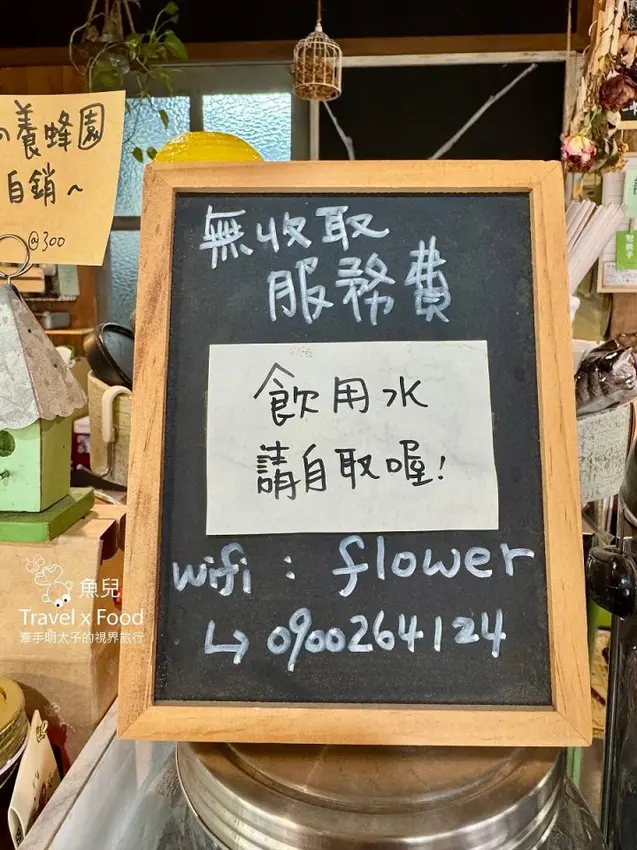 養蜂園
自銷~
@300
無收取
服務費
飲用水
請自取喔!
wifi : flower
↳ 0900264124
魚兒
Travel x Food
牽手明太子的視界旅行